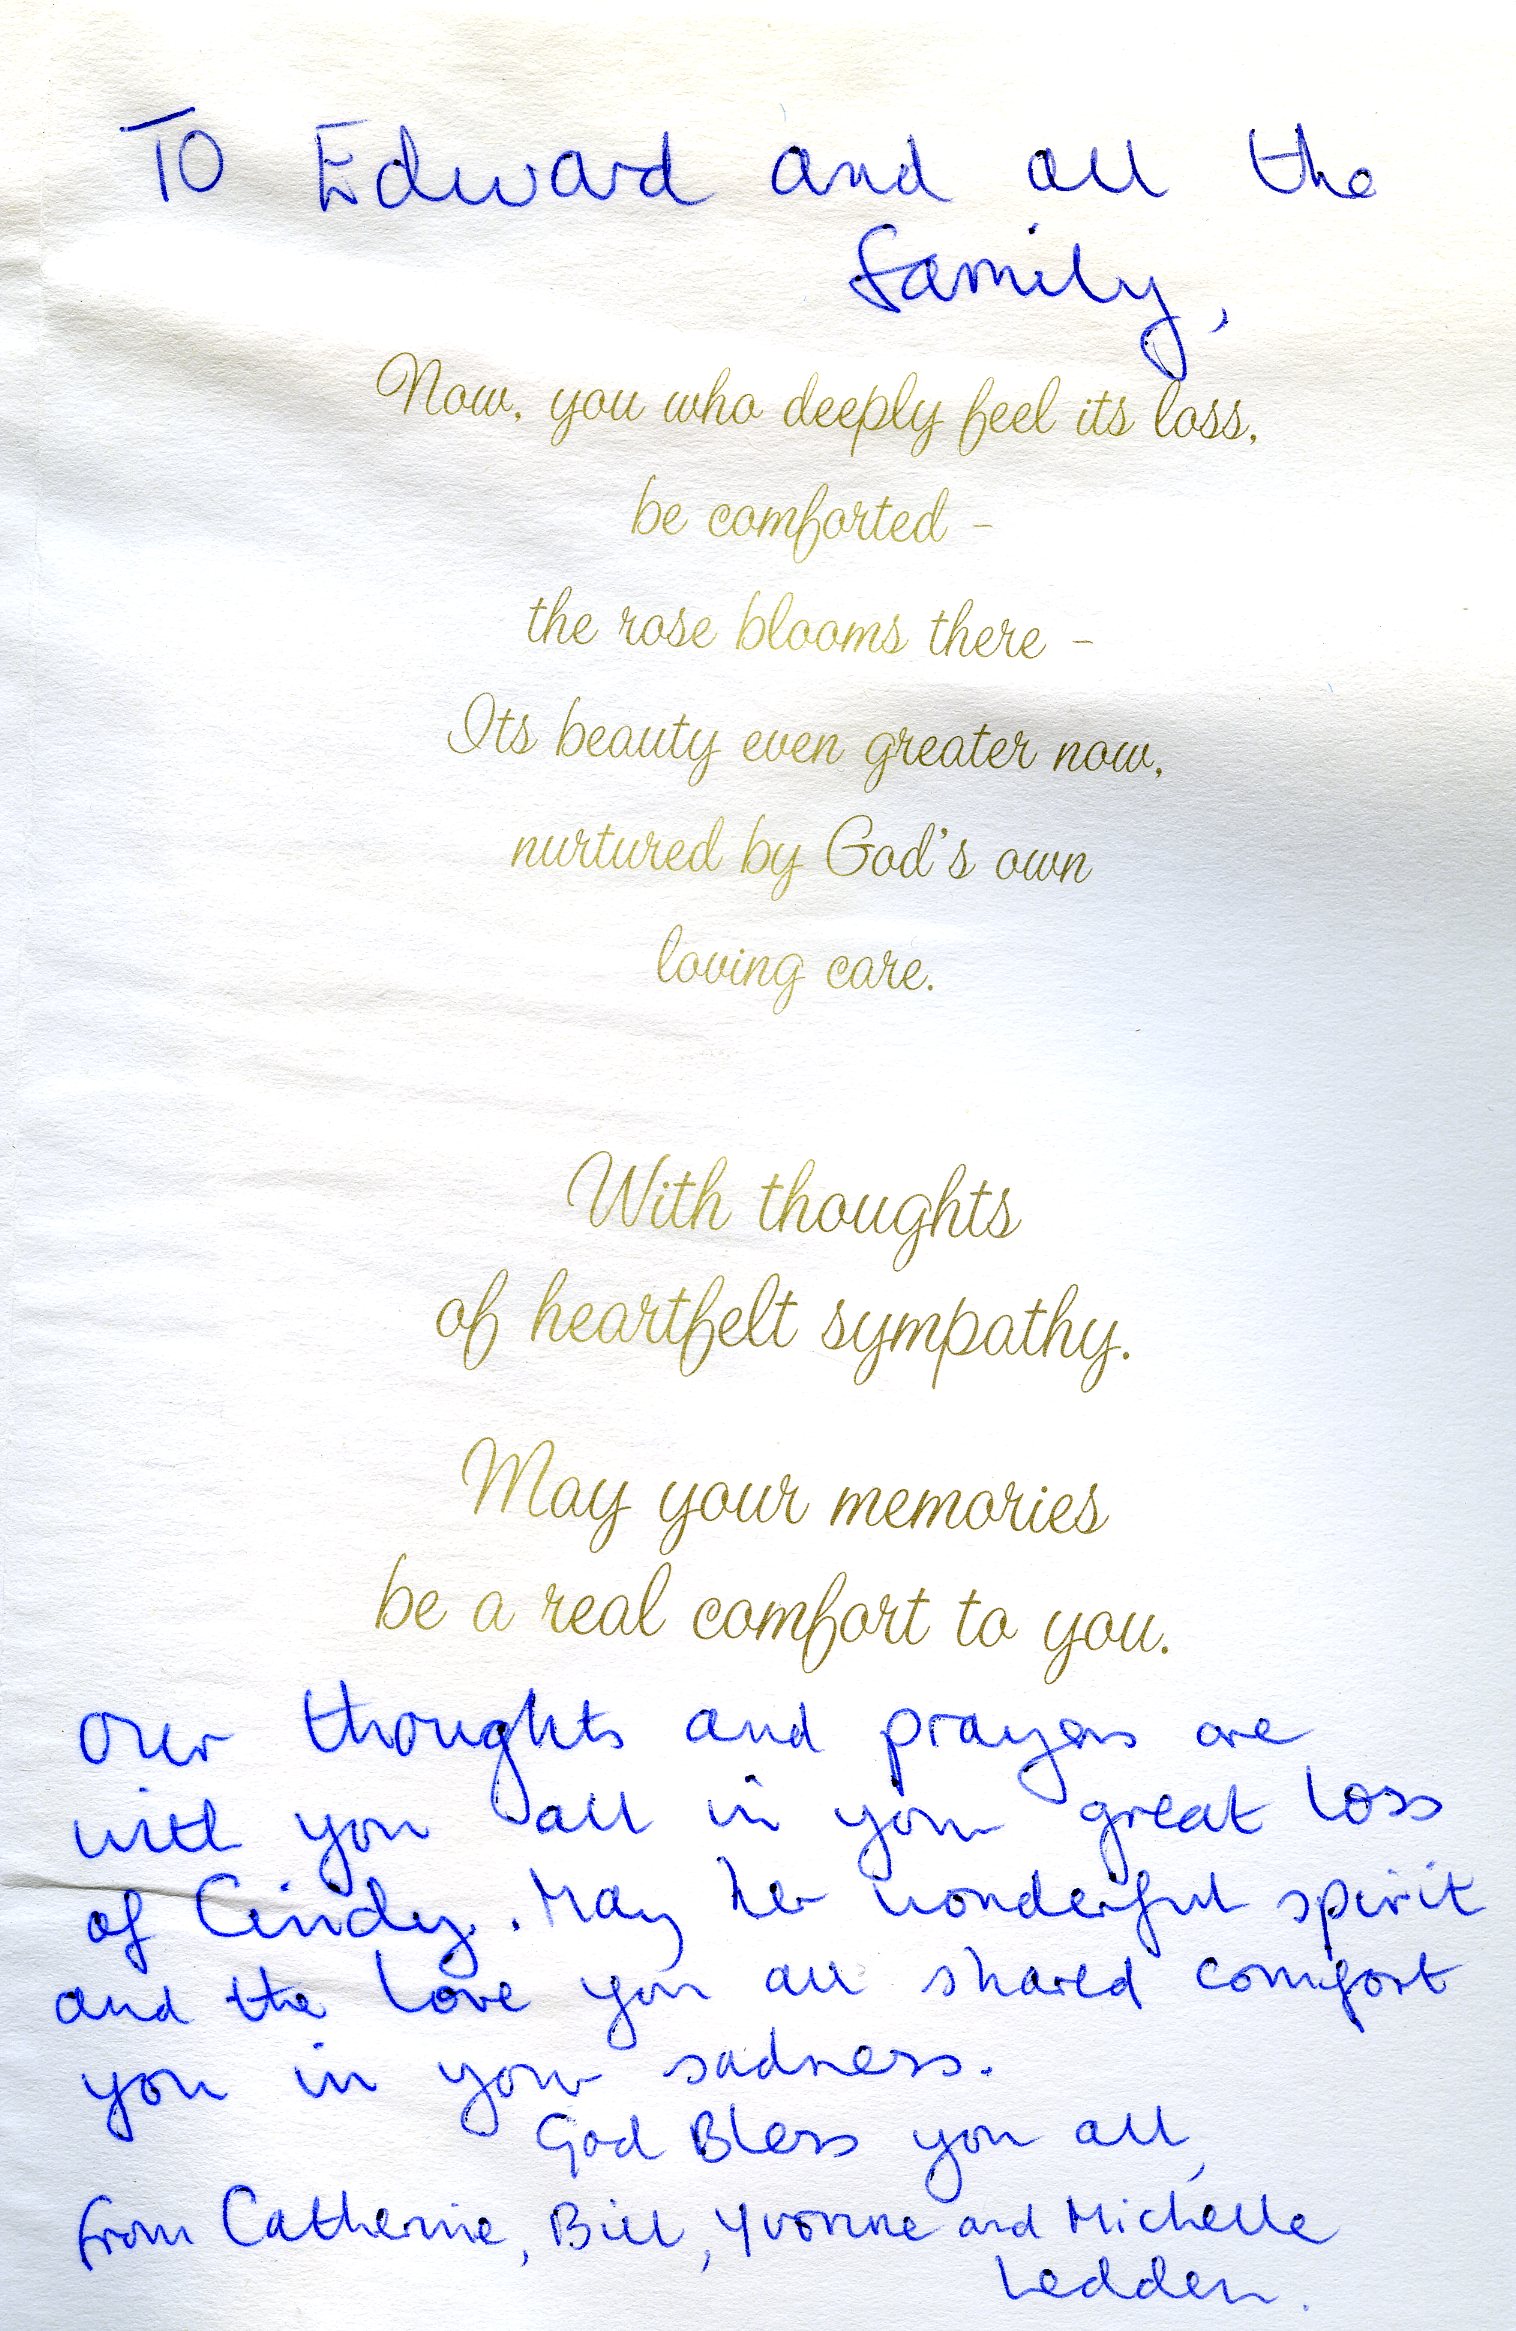 To Edward and all the
family,
Now, you who deeply feel its loss,
be comforted -
the rose blooms there -
Its beauty even greater now,
nurtured by God's own
loving care.
With thoughts
of heartfelt sympathy.
May your memories
be a real comfort to you.
Our thoughts and prayers are
with you all in your great loss
of Cindy. May her wonderful spirit
and the love you all shared comfort
you in your sadness.
God Bless you all,
from Catherine, Bill, Yvonne and Michelle
Ledden.